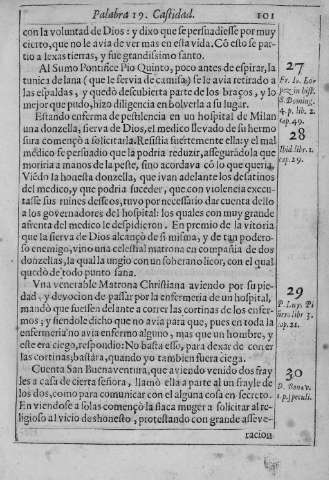 Palabra 19. Castidad. 101
con la voluntad de Dios: y dixo que se persuadiesse por muy
cierto, que no le avia de ver mas en esta vida. Cō esto se par-
tio a lexas tierras, y fue grandissimo santo.
Al Sumo Pontifice Pio Quinto, poco antes de espirar, la
tunica de lana (que le servia de camisa) se le avia retirado a
las espaldas, y quedò descubierta parte de los braços, y lo
mejor que pudo, hizo diligencia en bolverla a su lugar.
27
Fr. Io. Lo-
pez in hist.
S. Doming.
4. p. lib. 2.
cap. 49.
Estando enferma de pestilencia en un hospital de Milan
una donzella, sierva de Dios, el medico llevado de su hermo
sura començò a solicitarla. Resistia fuertemente ella: y el mal
medico se persuadio que la podria reduzir, assegurādola que
moriria a manos de la peste, sino acordava cō lo que queria.
Viēdo la honesta donzella, que ivan adelante los desatinos
del medico, y que podria suceder, que con violencia execu-
tasse sus ruines desseos, tuvo por necessario dar cuenta dello
a los governadores del hospital: los quales con muy grande
afrenta del medico le despidieron. En premio de la vitoria
que la sierva de Dios alcançò de si misma, y de tan podero-
so enemigo, vino una celestial matrona en compañia de dos
donzellas, la qual la ungio con un soberano licor, con el qual
quedò de todo punto sana.
28
Ibid. libr. 1.
cap. 29.
Vna venerable Matrona Christiana aviendo por su pie-
dad, y devocion de passar por la enfermeria de un hospital,
mandò que fuessen delante a correr las cortinas de los enfer-
mos; y siendole dicho que no avia para que, pues en toda la
enfermeria no avia enfermo alguno, mas que un hombre, y
este era ciego, respondio: No basta esso, para dexar de correr
las cortinas, bastàra, quando yo tambien fuera ciega.
29
P. Luys. Pi
libr. 3.
cap. 21.
Cuenta San Buenaventura, que aviendo venido dos fray
les a casa de cierta señora, llamò ella a parte al un frayle de
los dos, como para comunicar con el alguna cosa en secreto.
En viendose a solas començò la flaca muger a solicitar al re-
ligioso al vicio deshonesto, protestando con grande asseve-
racion
30
D. Bonav.
1. p. speculi.